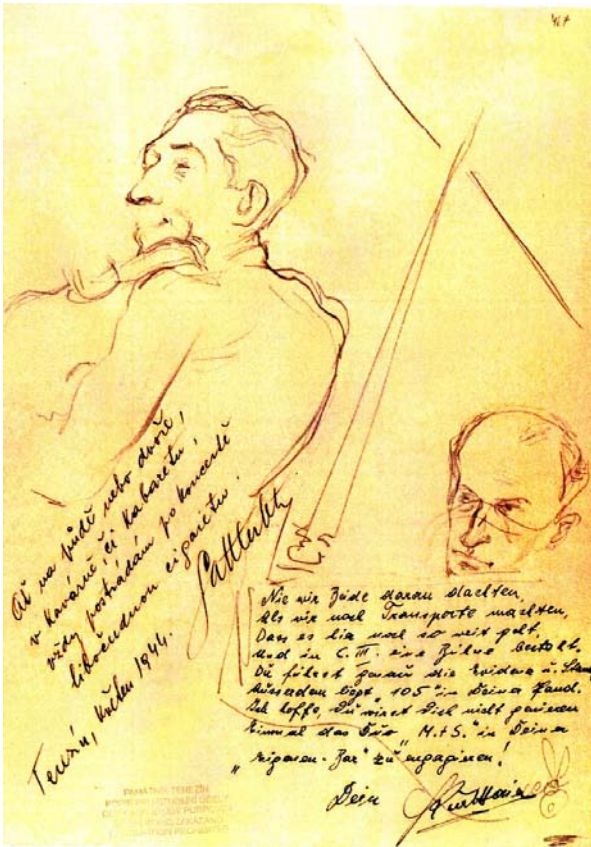 467
Ať na půdě nebo dvoře,
v kavárně, či kabaretu,
vždy postrádám po koncertě
libočudnou cigaretu.
Terezín, květen 1944.
Nie wir Beide daran dachten,
Als wir noch Transporte machten,
Dass es hier noch so weit geht,
Und in C. III. eine Bühne besteht.
Du führst genau die Evidenz u. Stand
Ausserdem liegt "105" in Deiner Hand.
Ich hoffe, Du wirst Dich nicht genieren
Einmal das Duo "M.+S." in Deiner
"Bar" zu engagieren!
Dein
PAMÁTNÍK TEREZÍN